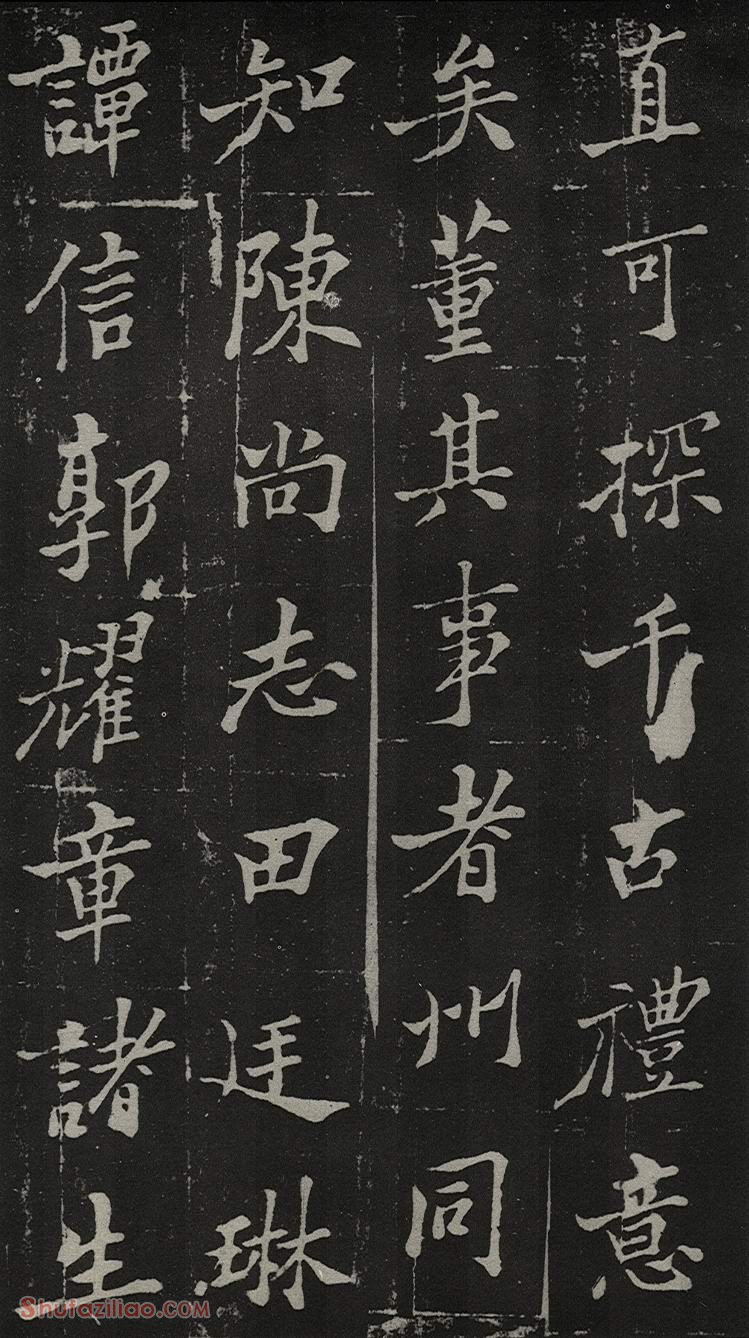 直可探千古禮意
矣董其事者州同
知陳尚志田廷琳
譚信郭耀章諸生
Shufaziliao.com